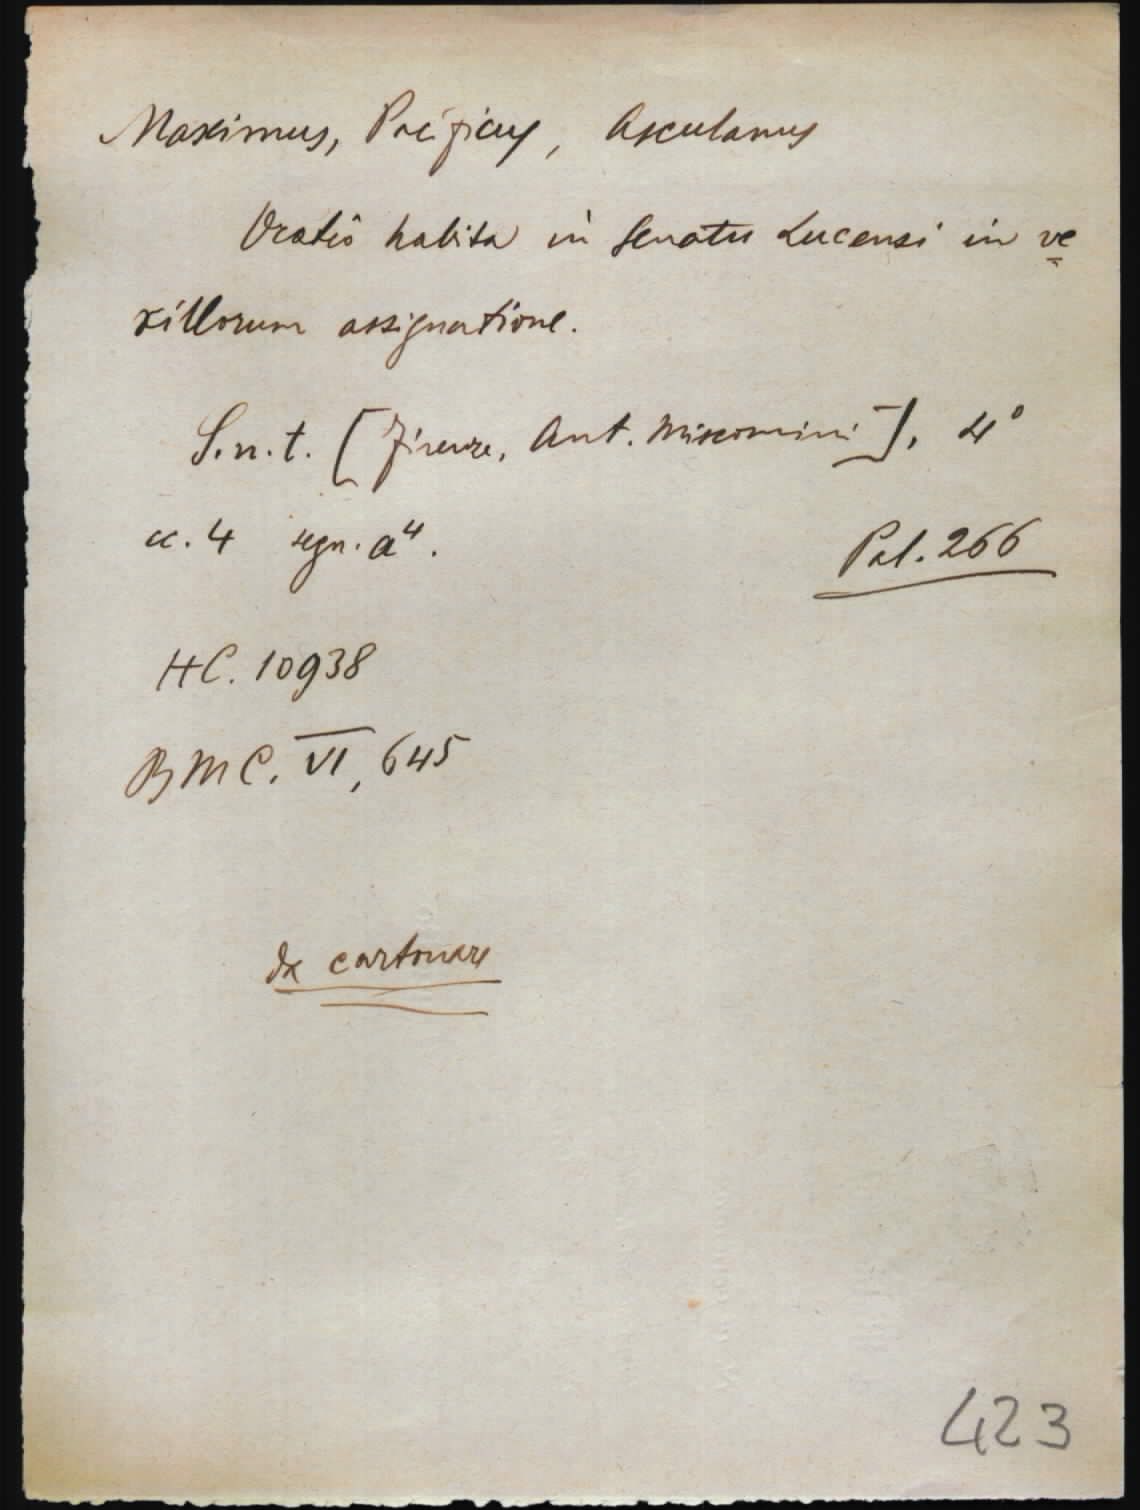 Maximus, Pacificus, Asculanus
Oratio habita in Senatu Lucensi in ve
xillorum assignatione.
S.n.t. [Firenze, Ant. Miscomini], 4°
cc. 4 segn. a⁴.
Pal. 266
HC. 10938
BMC. VI, 645
da cartonare
423